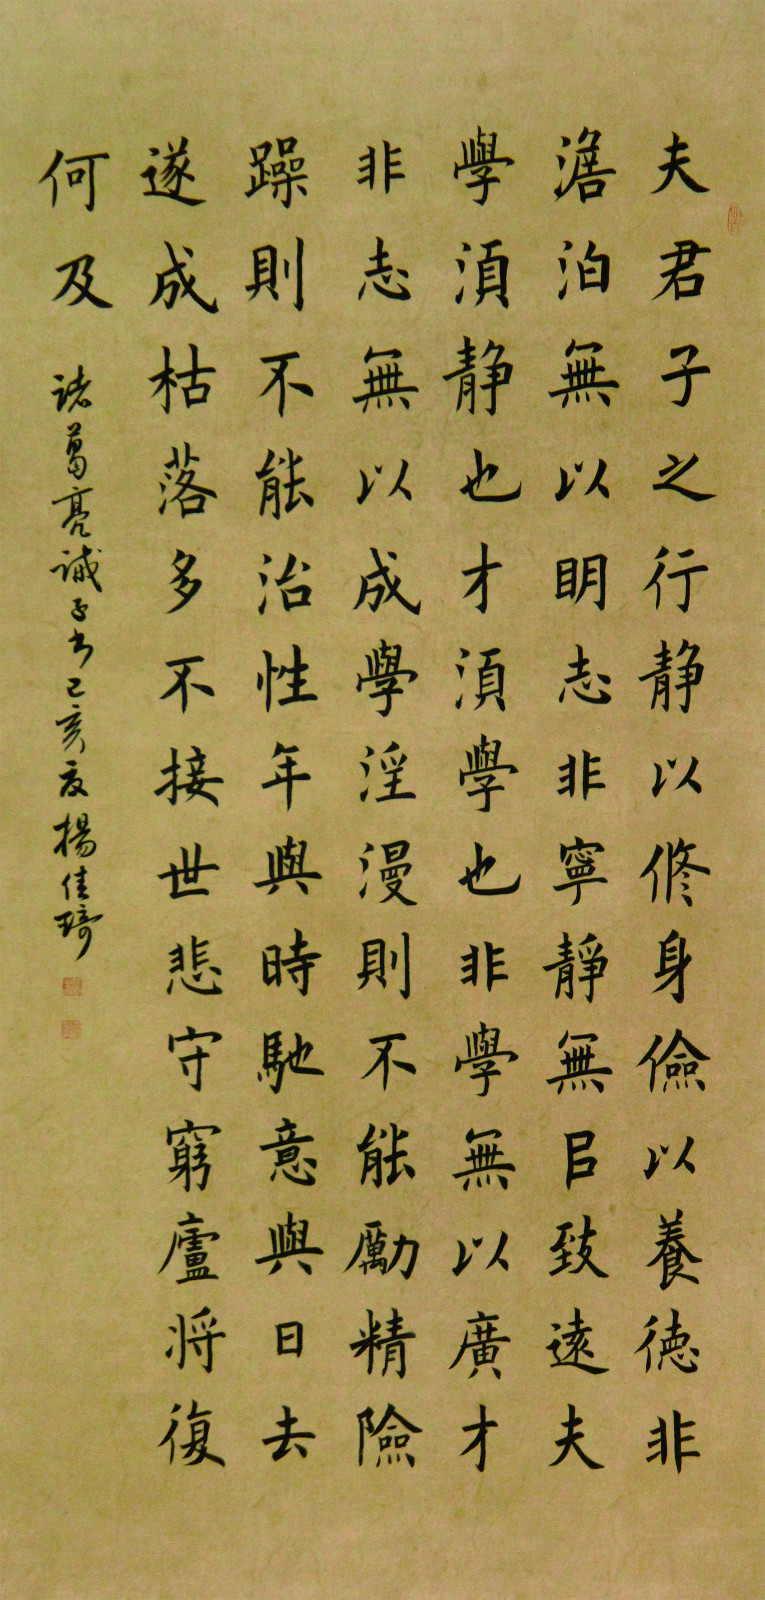 夫君子之行静以修身儉以養德非
澹泊無以眀志非寧靜無㠯致遠夫
學湏静也才湏學也非學無以廣才
非志無以成學淫漫則不能勵精險
躁則不能治性年與時馳意與日去
遂成枯落多不接世悲守窮廬将復
何及
諸葛亮誡子书己亥夏楊佳琦